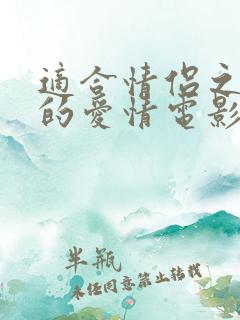 適合情侶之
的愛情電影
半瓶
未经同意禁止转载